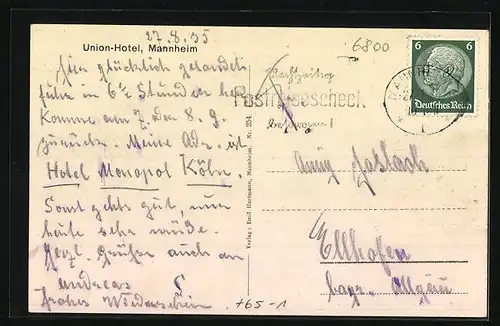 27.8.35
Union-Hotel, Mannheim
6800
Hier glücklich gelandet,
fuhr in 6½ Stunden her
Komme am 7. 8. 9.
zurück. Meine Adr. ist
Hotel Monopol Köln.
Sonst gehts gut, nur
heute sehr müde.
Herzl. Grüße auch an
Andreas
frohes Wiedersehen
+65-1
Verlag: Emil Hartmann, Mannheim. Nr. 254.
Postreisescheck
6 6
Deutsches Reich
Ellhofen
bayr. Allgäu